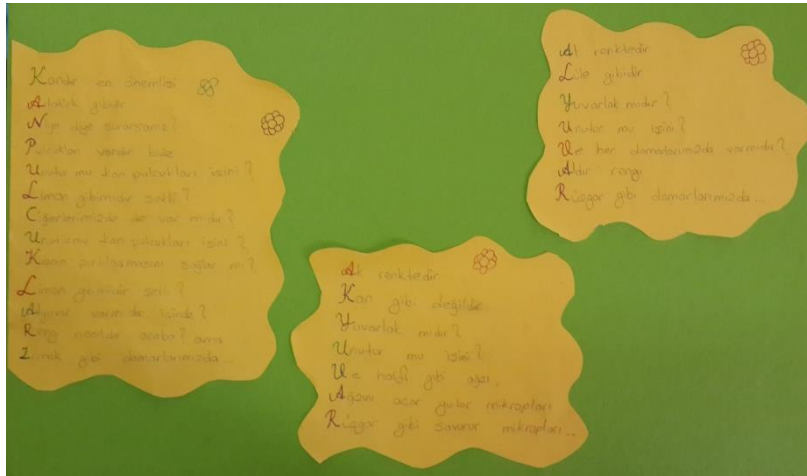 Kandır en önemlisi
Atatürk gibidir
Niye diye sorarsanız?
Pulcukları vardır bide
Unutur mu kan pulcukları işini?
Limon gibimidir şekli?
Ciğerlerimizde de var mıdır?
Unuturmu kan pulcukları işini?
Kanın pıhtılaşmasını sağlar mı?
Limon gibimidir şekli?
varmıdır içinde?
Rengi nasıldır acaba? ama
gibi damarlarımızda...
Al renktedir
Lale gibidir
Yuvarlak mıdır?
Unutur mu işini?
Ve her damarlarımızda varmıdır?
Aldır rengi
Rüzgar gibi damarlarımızda...
Ak renktedir
Kan gibi değilde
Yuvarlak mıdır?
Unutur mu işini?
Ve gibi ağzı,
Ağzını açar yutar mikropları
Rüzgar gibi savurur mikropları...